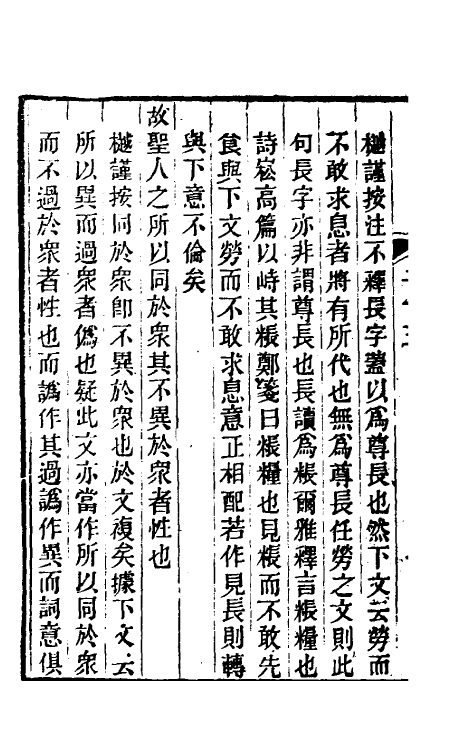 樾謹按注不釋長字蓋以爲尊長也然下文云勞而
不敢求息者將有所代也無爲尊長任勞之文則此
句長字亦非謂尊長也長讀爲粻爾雅釋言粻糧也
詩崧高篇以峙其粻鄭箋曰粻糧也見粻而不敢先
食與下文勞而不敢求息意正相配若作見長則轉
與下意不倫矣
故聖人之所以同於衆其不異於衆者性也
樾謹按同於衆卽不異於衆也於文複矣據下文云
所以異而過衆者僞也疑此文亦當作所以同於衆
而不過於衆者性也而譌作其過譌作異而詞意俱